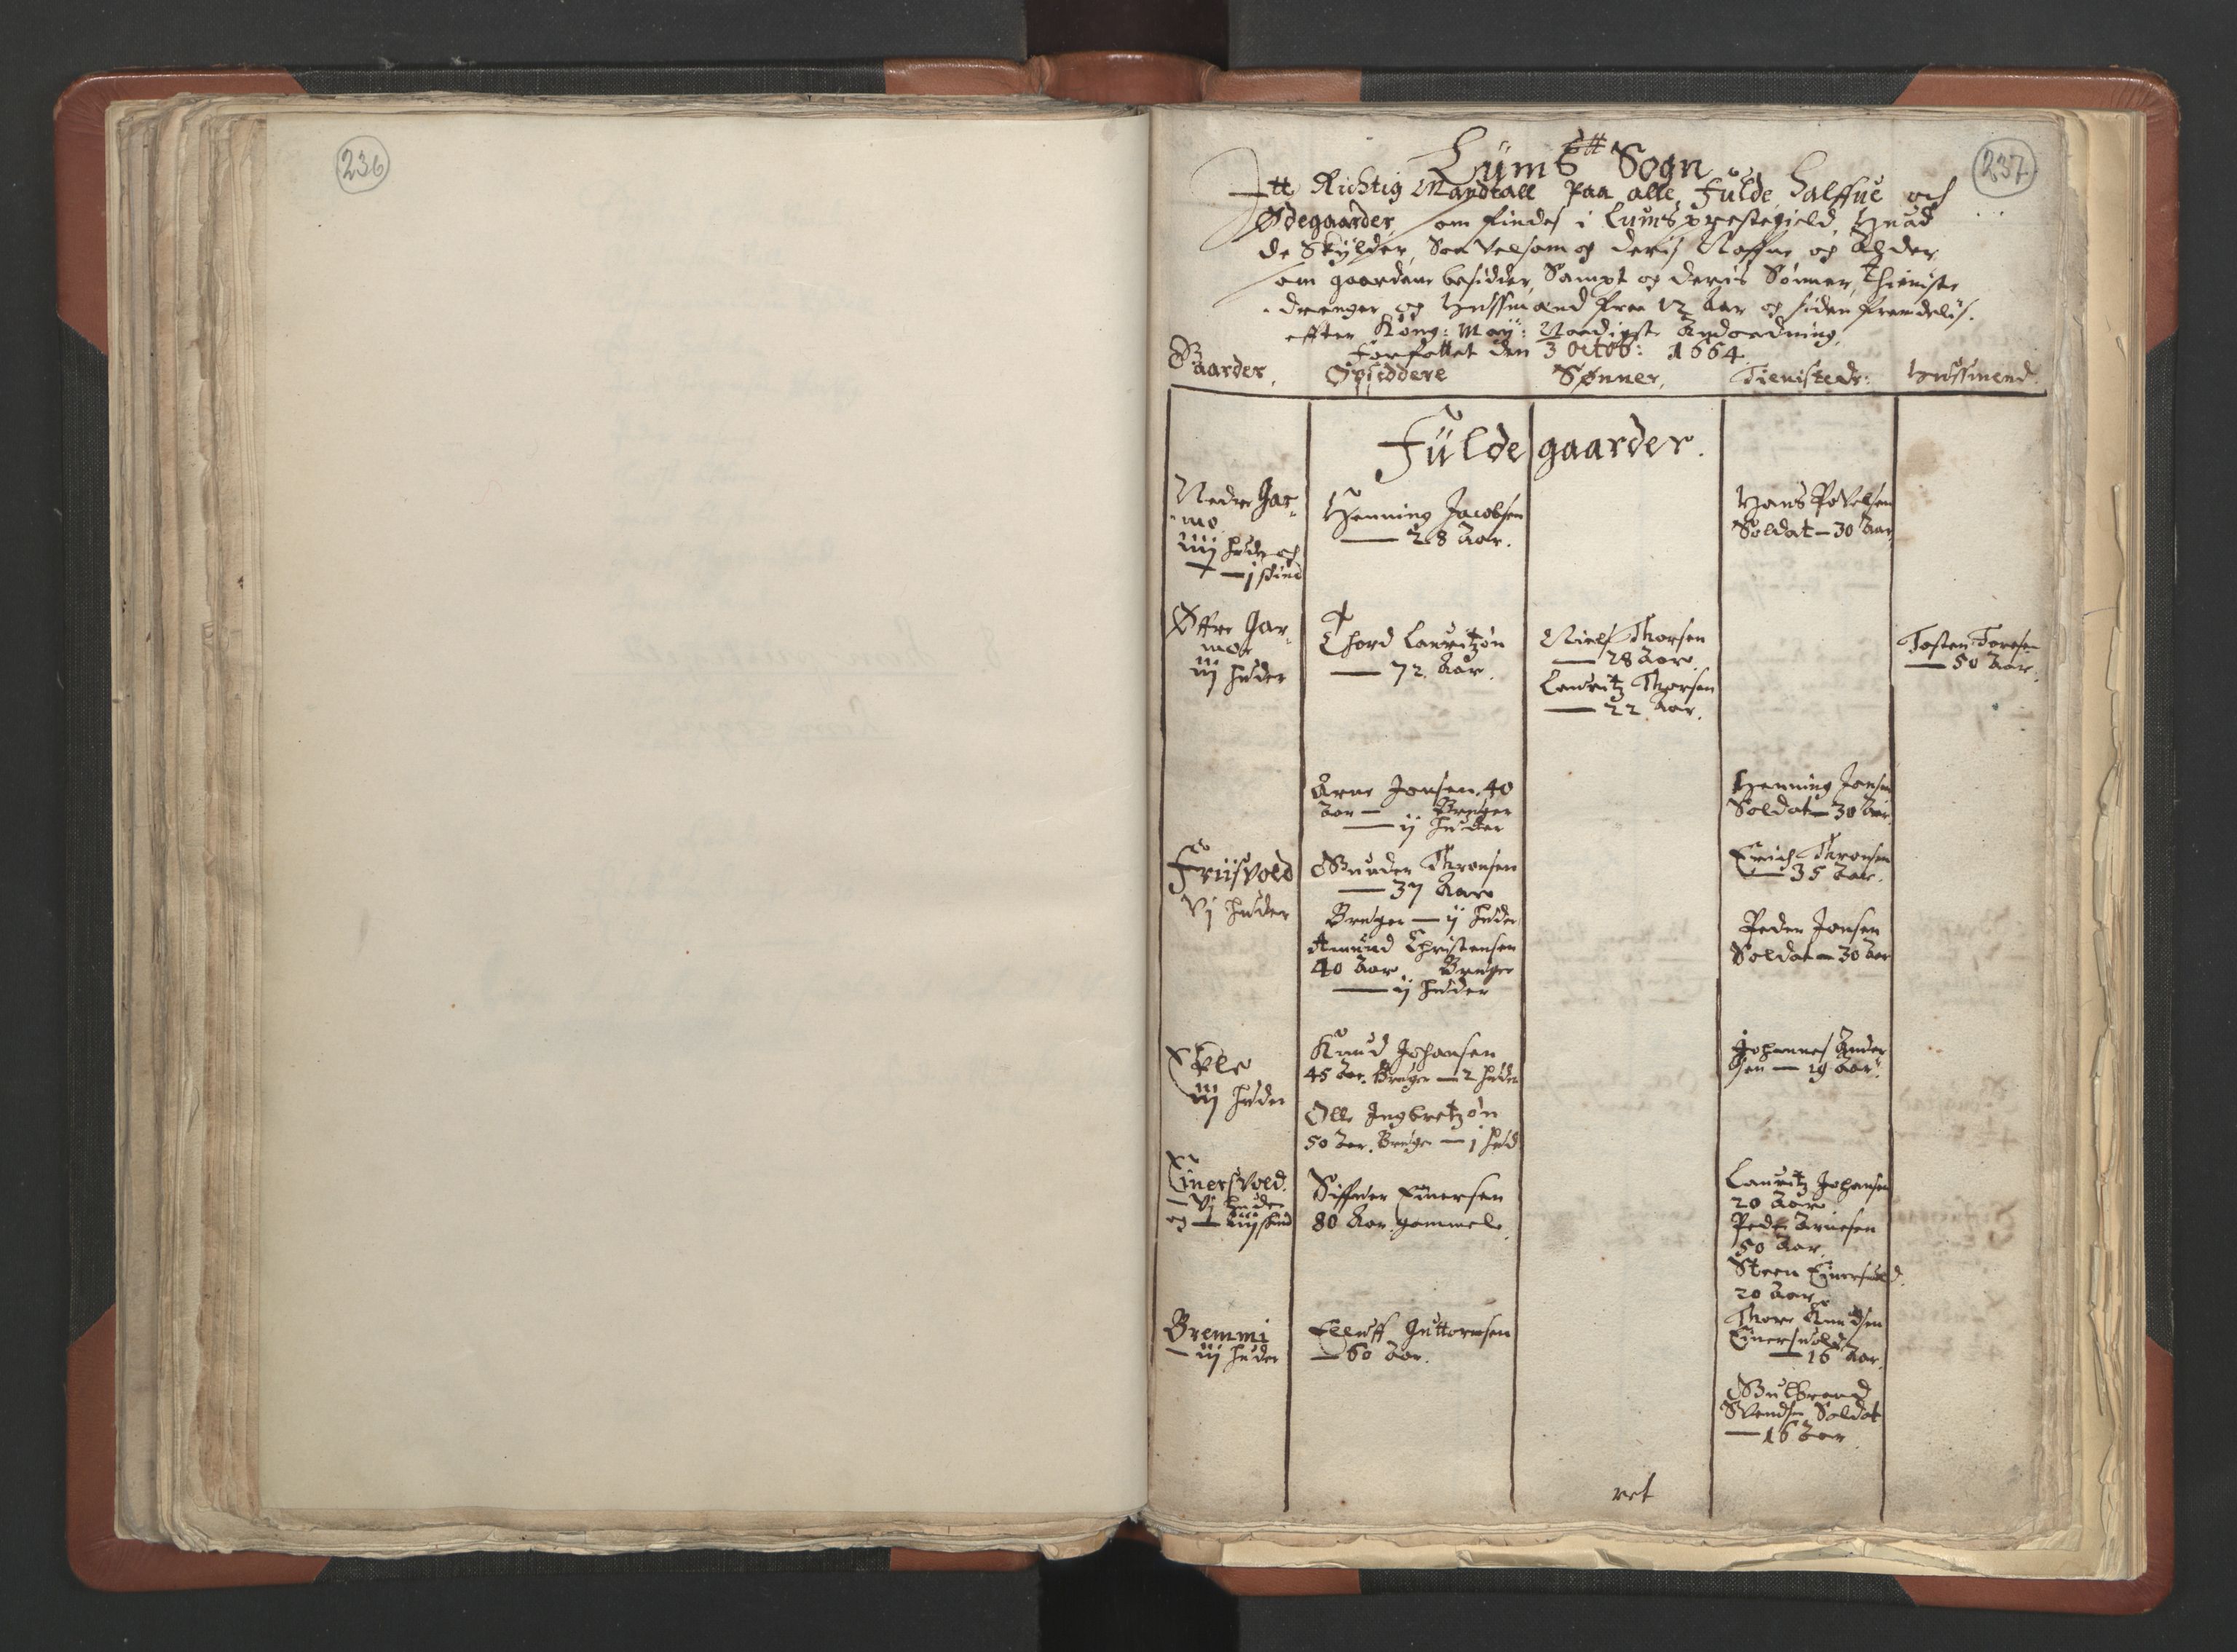 236
237
Lüms Sogn
Itt Richtig Mandtall paa alle Fulde Halffue och
Ødegaarder, som findes i Lums prestegield, huad
de Skÿlder, Saa velsom og deris Naffne og Alder
som gaardene besidder, Sampt og deris Sønner, Thieniste
drenger og Hussmænd fra 12 Aar og siden fremdelis.
effter Kong: May: Naadigste Andordning.
Forfattet den 3 Octob: 1664.
Gaarder. Opsiddere Sønner. Tienistedr: Hussmend.
Fülde gaarder.
Nedre Gar-
mo
iiij huder och
— j skind
Henning Jacobsen
— 28 Aar.
Hans Povelsen
Soldat — 30 Aar
Øffre Gar-
moe
iij huder
Thord Lauritzøn
— 72 Aar.
Niels Thorsen
— 28 Aar.
Lauritz Thorsen
— 22 Aar.
Tosten Toresen
— 50 Aar.
Arne Jonsen 40
Aar — Bruger
— ij huder
Henning Jonsen
Soldat — 30 Aar
Friisvold
vj huder
Gunder Thronsen
— 37 Aar
Bruger — ij huder
Amund Christensen
40 Aar. Bruger
— ij huder
Erich Thronsen
— 35 Aar.
Peder Jonsen
Soldat — 30 Aar
iij huder
Knud Johansen
45 Aar. Bruger — 2 huder
Olle Ingbretzøn
50 Aar. Bruger — j hud
Johannes Ander
sen — 19 Aar.
Einersvold.
— vj huder
og — iiij skind
Siffuer Einersen
80 Aar gammel.
Lauritz Johansen
20 Aar
Peder Arnesen
50 Aar.
Steen Einersuold.
20 Aar
Thore Knudsen
Einersuold
— 16 Aar.
Bremmi
— iij huder
Elluff Guttormsen
— 60 Aar.
Gulbrand
Svendsen Soldat
— 16 Aar